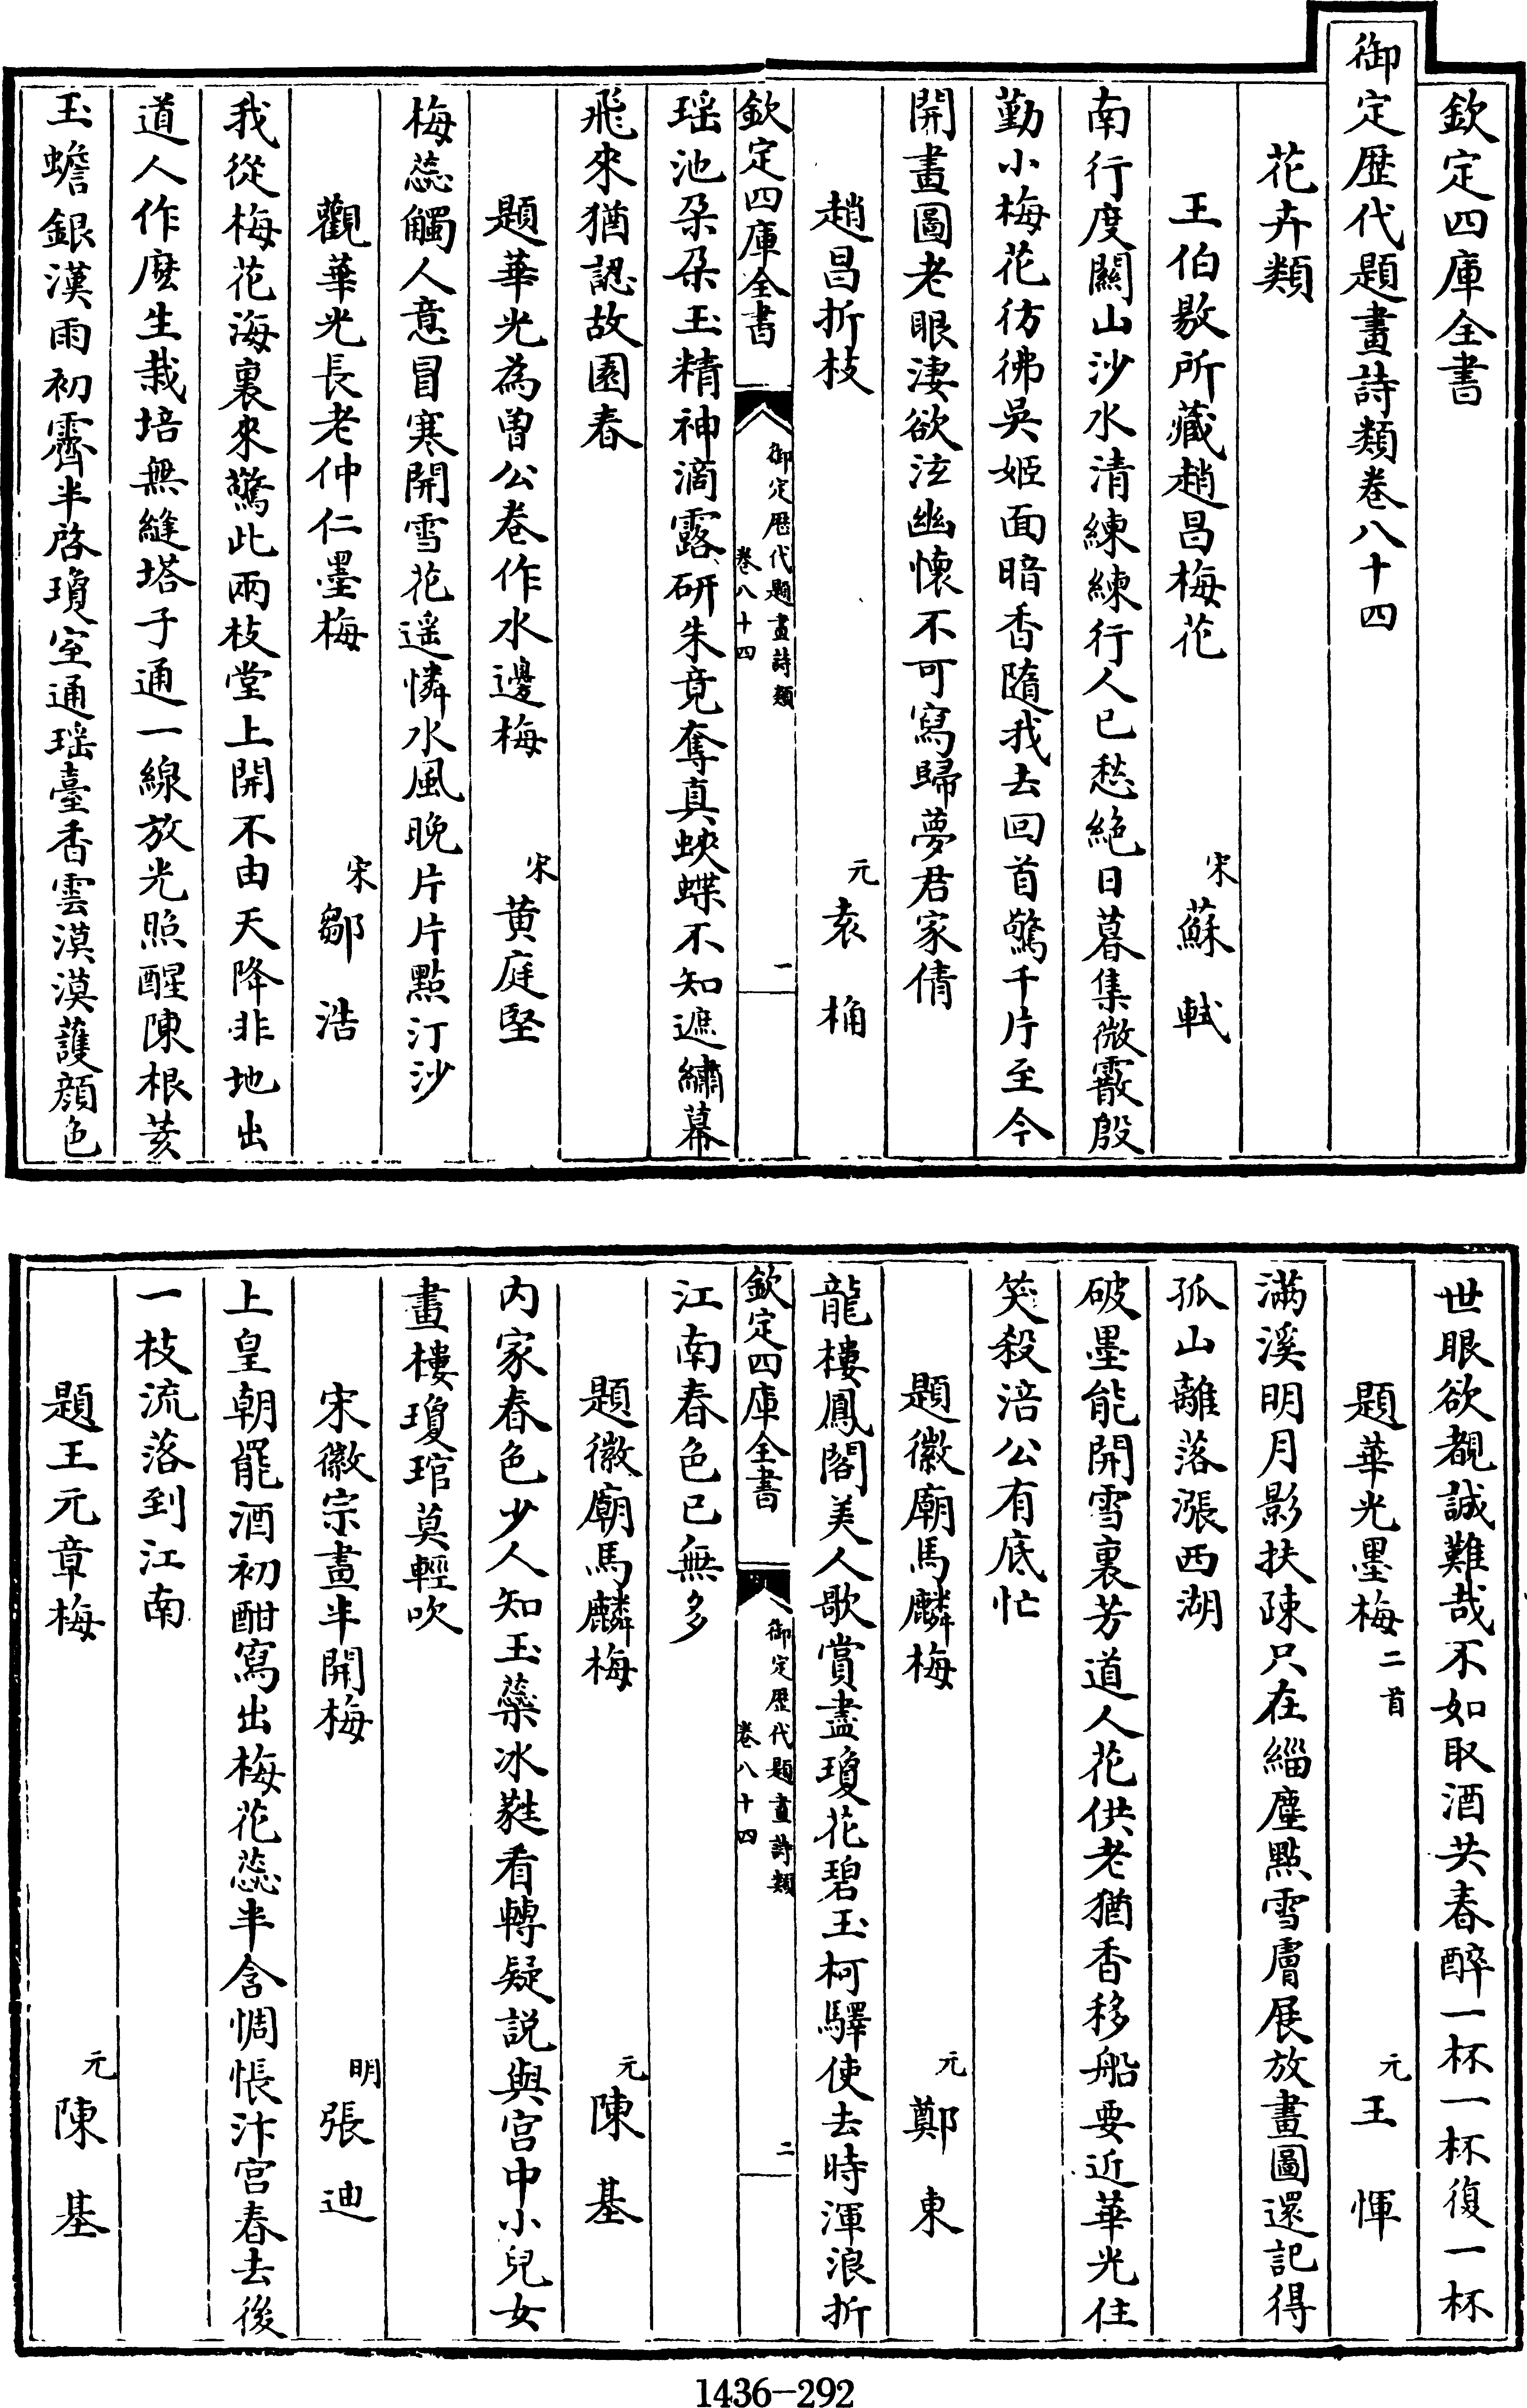 欽定四庫全書
御定歴代題畫詩類卷八十四
花卉類
王伯敭所藏趙昌梅花 宋 蘇軾
南行度關山沙水清練練行人已愁絶日暮集微霰殷
勤小梅花彷彿吳姬面暗香隨我去回首驚千片至今
開畫圖老眼淒欲泫幽懷不可寫歸夢君家倩
趙昌折枝 元 袁桷
欽定四庫全書
御定歴代題畫詩類
卷八十四
一
瑶池朶朶玉精神滴露研朱竟奪真蛺蝶不知遮繡幕
飛來猶認故園春
題華光為曾公卷作水邊梅 宋 黄庭堅
梅蕊觸人意冒寒開雪花遥憐水風晚片片點汀沙
觀華光長老仲仁墨梅 宋 鄒浩
我從梅花海裏來驚此兩枝堂上開不由天降非地出
道人作麽生栽培無縫塔子通一線放光照醒陳根荄
玉蟾銀漢雨初霽半啓瓊室通瑶臺香雲漠漠護顔色
世眼欲覩誠難哉不如取酒共春醉一杯一杯復一杯
題華光墨梅二首 元 王惲
滿溪明月影扶疎只在緇塵點雪膚展放畫圖還記得
孤山離落漲西湖
破墨能開雪裏芳道人花供老猶香移船要近華光住
笑殺涪公有底忙
題徽廟馬麟梅 元 鄭東
龍樓鳳閣美人歌賞盡瓊花碧玉柯驛使去時渾浪折
欽定四庫全書
御定歴代題畫詩類
卷八十四
二
江南春色已無多
題徽廟馬麟梅 元 陳基
内家春色少人知玉蘂冰蕤看轉疑説與宫中小兒女
畫樓瓊琯莫輕吹
宋徽宗畫半開梅 明 張迪
上皇朝罷酒初酣寫出梅花蕊半含惆悵汴宫春去後
一枝流落到江南
題王元章梅 元 陳基
1436-292